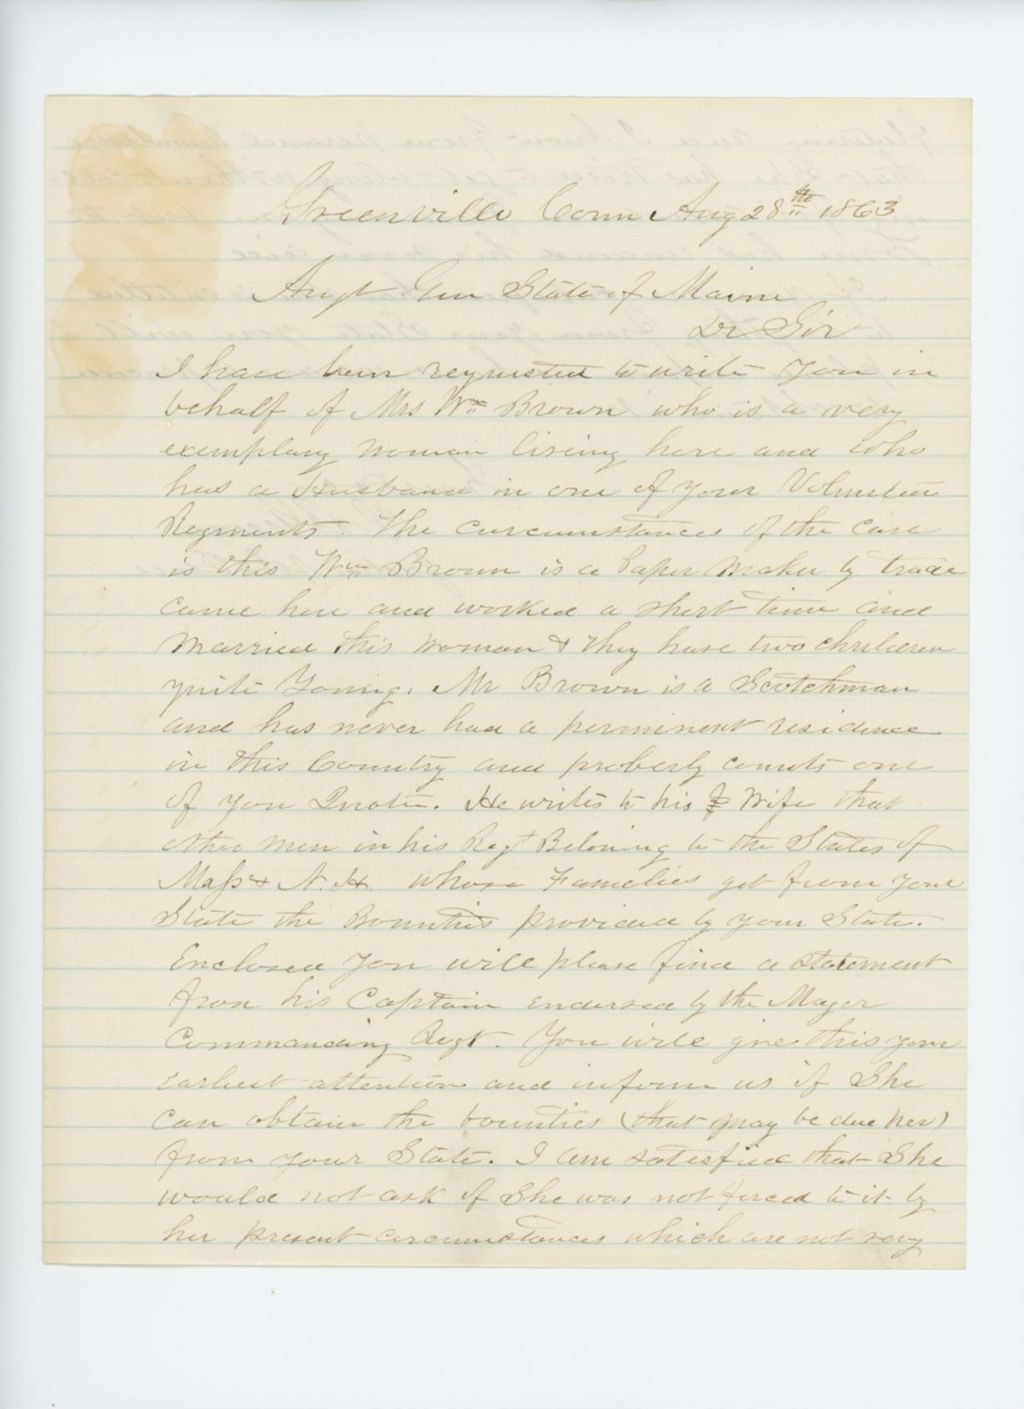 Greenville Conn Aug 28th 1863
Adgt Gen State of Maine
Dr Sir
I have been requested to write you in
behalf of Mrs Wm Brown who is a very
exemplary woman living here and who
has a Husband in one of your Volunteer
Regments. The curcumstances of the case
is this Wm Brown is a Paper Maker by trade
came here and worked a short time and
married this woman & they have two children
quite Young. Mr Brown is a Scotchman
and has never had a perminent residence
in this Country and proberly counts one
of your Quota. He writes to his Wife that
other men in his Regt Beloning to the States of
Mass & N.H. whose Families get from your
State the Bounties provided by your State.
Enclosed you will please find a statement
from his Captain endorsed by the Mager
Commanding Regt. You will give this your
earliest attention and inform us if She
can obtain the bounties (that may be due her)
from your State. I am satisfied that She
would not ask if She was not forced to it by
her present circumstances which are not very